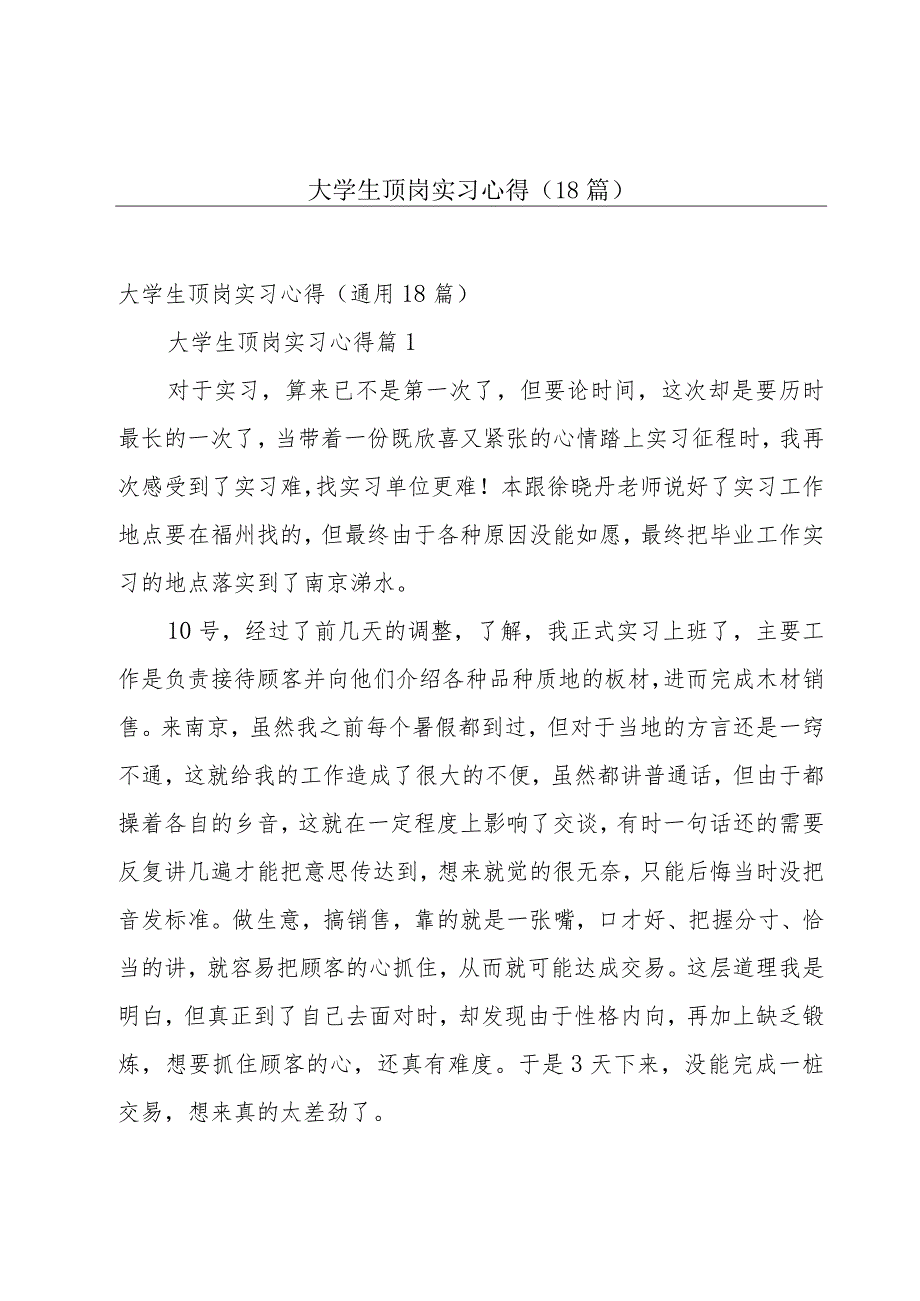 大学生顶岗实习心得（18 篇）
大学生顶岗实习心得（通用 18 篇）
大学生顶岗实习心得篇 1
对于实习，算来已不是第一次了，但要论时间，这次却是要历时
最长的一次了，当带着一份既欣喜又紧张的心情踏上实习征程时，我再
次感受到了实习难，找实习单位更难！本跟徐晓丹老师说好了实习工作
地点要在福州找的，但最终由于各种原因没能如愿，最终把毕业工作实
习的地点落实到了南京涕水。
10 号，经过了前几天的调整，了解，我正式实习上班了，主要工
作是负责接待顾客并向他们介绍各种品种质地的板材，进而完成木材销
售。来南京，虽然我之前每个暑假都到过，但对于当地的方言还是一窍
不通，这就给我的工作造成了很大的不便，虽然都讲普通话，但由于都
操着各自的乡音，这就在一定程度上影响了交谈，有时一句话还的需要
反复讲几遍才能把意思传达到，想来就觉的很无奈，只能后悔当时没把
音发标准。做生意，搞销售，靠的就是一张嘴，口才好、把握分寸、恰
当的讲，就容易把顾客的心抓住，从而就可能达成交易。这层道理我是
明白，但真正到了自己去面对时，却发现由于性格内向，再加上缺乏锻
炼，想要抓住顾客的心，还真有难度。于是 3 天下来，没能完成一桩
交易，想来真的太差劲了。